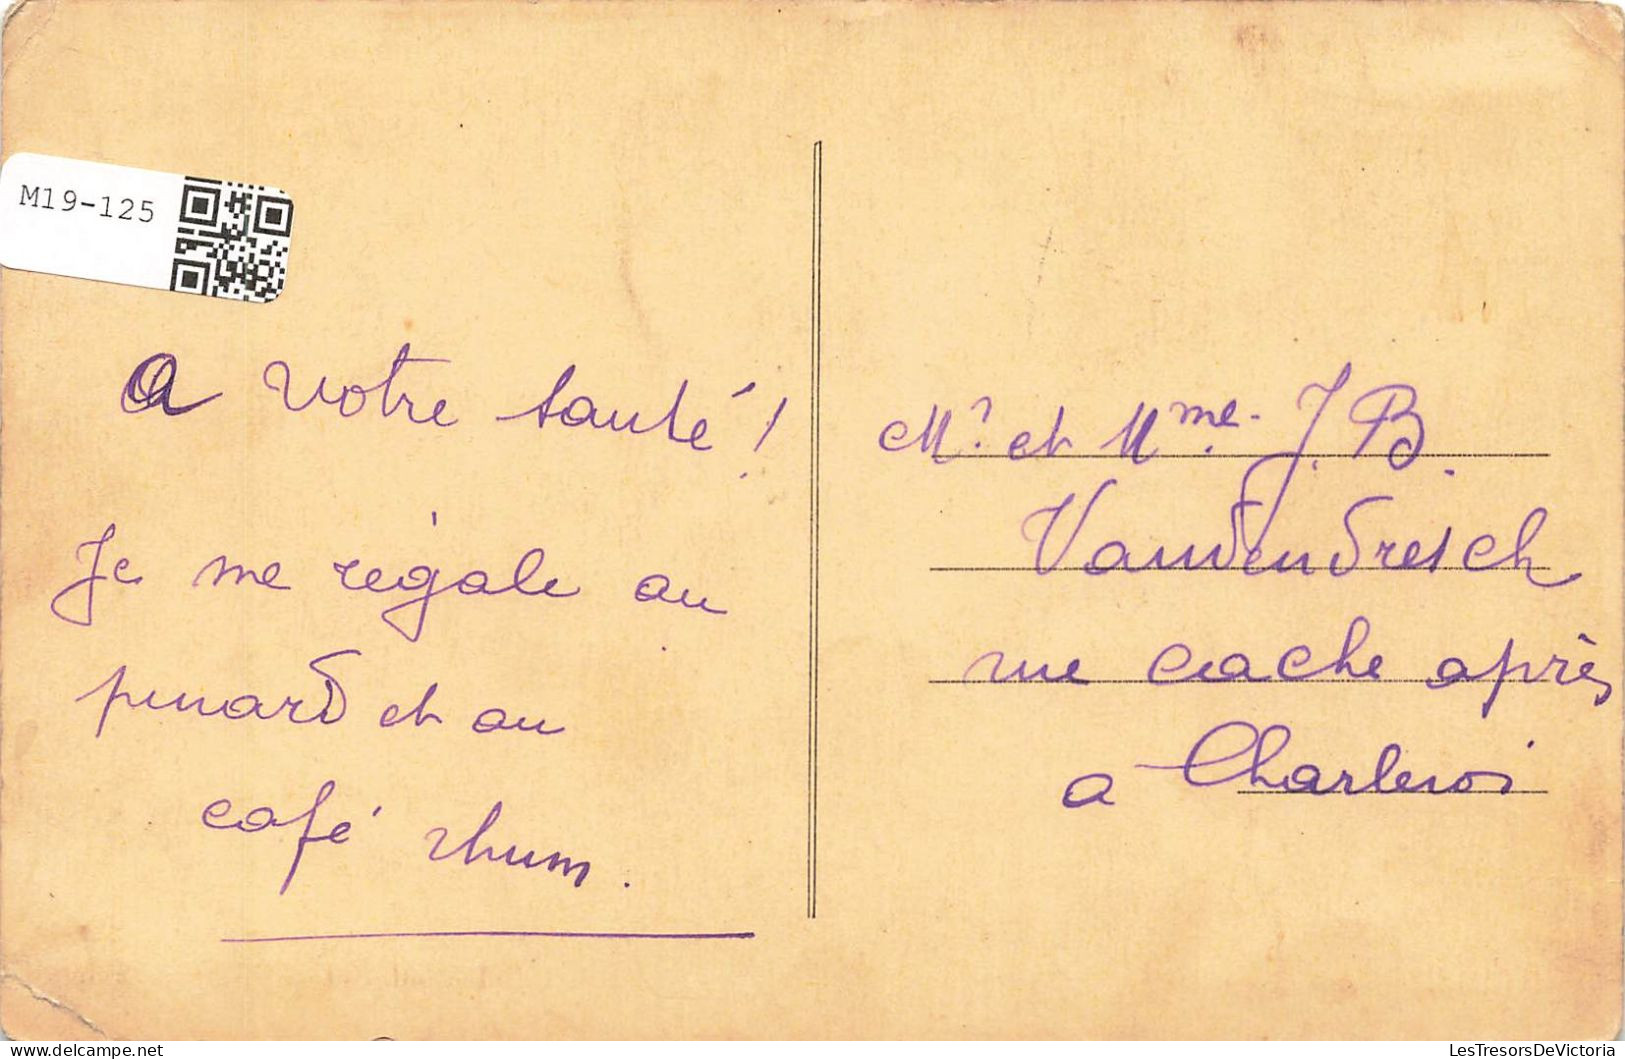 M19-125
A votre santé !
Je me régale au
pinard et au
café rhum.
Mr. et Mme. J. B.
Vandendresch
rue cache après
a Charleroi
LesTresorsDeVictoria